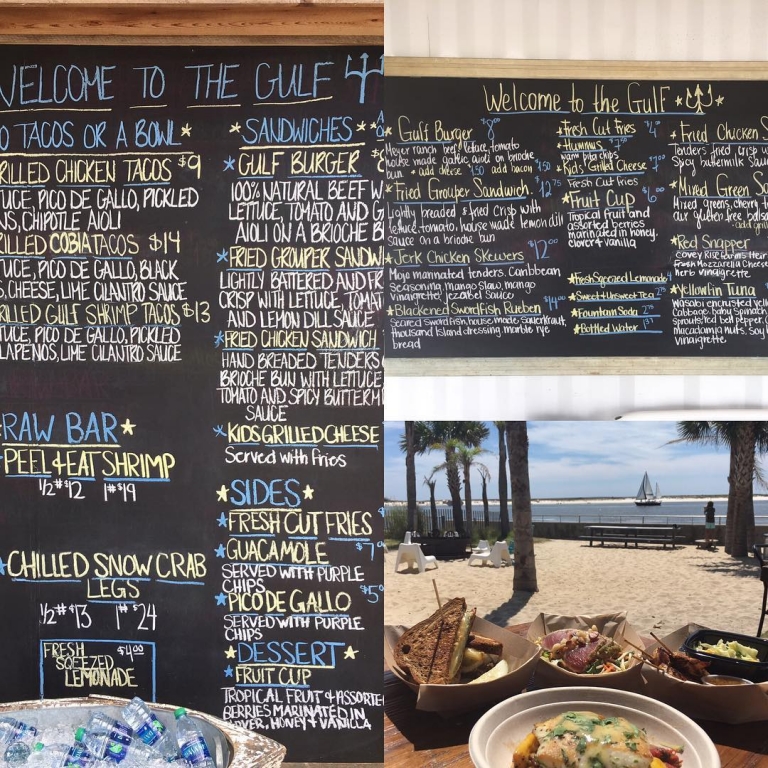 WELCOME TO THE GULF
TACOS OR A BOWL
GRILLED CHICKEN TACOS $9
LETTUCE, PICO DE GALLO, PICKLED
CHIPOTLE AIOLI
GRILLED COBIA TACOS $14
LETTUCE, PICO DE GALLO, BLACK
CHEESE, LIME CILANTRO SAUCE
GRILLED GULF SHRIMP TACOS $13
LETTUCE, PICO DE GALLO, PICKLED
JALAPENOS, LIME CILANTRO SAUCE
RAW BAR
PEEL & EAT SHRIMP
1/2# $12 1# $19
CHILLED SNOW CRAB
LEGS
1/2# $13 1# $24
FRESH $4.00
SQEEZED
LEMONADE
SANDWICHES
GULF BURGER
100% NATURAL BEEF W
LETTUCE, TOMATO AND G
AIOLI ON A BRIOCHE B
FRIED GROUPER SANDW
LIGHTLY BATTERED AND FR
CRISP WITH LETTUCE, TOMAT
AND LEMON DILL SAUCE
FRIED CHICKEN SANDWICH
HAND BREADED TENDERS
BRIOCHE BUN WITH LETTUCE,
TOMATO AND SPICY BUTTERM
SAUCE
KIDS GRILLED CHEESE
Served with fries
SIDES
FRESH CUT FRIES
GUACAMOLE $7
SERVED WITH PURPLE
CHIPS
PICO DE GALLO $5
SERVED WITH PURPLE
CHIPS
DESSERT
FRUIT CUP
TROPICAL FRUIT & ASSORTE
BERRIES MARINATED IN
CLOVER, HONEY & VANILLA
Welcome to the Gulf
Gulf Burger
Meyer ranch beef, lettuce, tomato
house made garlic aioli on brioche
bun add cheese .50 add bacon
Fried Grouper Sandwich
Lightly breaded & fried crisp with
lettuce, tomato, house made lemon dill
sauce on a brioche bun
Jerk Chicken Skewers $12
Mojo marinated tenders. Caribbean
seasoning, mango slaw, mango
vinaigrette, jezabel sauce
Blackened Swordfish Rueben
seared swordfish, house made sauerkraut,
thousand island dressing, marble rye
bread
Fresh Cut Fries $4
Hummus
warm pita chips
Kids Grilled Cheese
Fresh Cut Fries
Fruit Cup $6
Tropical fruit and
assorted berries
marinated in honey,
clover & vanilla
Fresh Sqeezed Lemonade
Sweet & Unsweet Tea
Fountain Soda
Bottled Water
Fried Chicken S
Tenders fried crisp
Spicy buttermilk sau
Mixed Green Sa
Mixed greens, cherry
our gluten free bals
Red Snapper
Covey Rise Farms
Fresh Mozzarella Cheese
herb vinaigrette
Yellowfin Tuna
Wasabi encrusted yel
Cabbage, baby spinach
sprouts, red bell pepper,
macadamia nuts, soy
vinaigrette